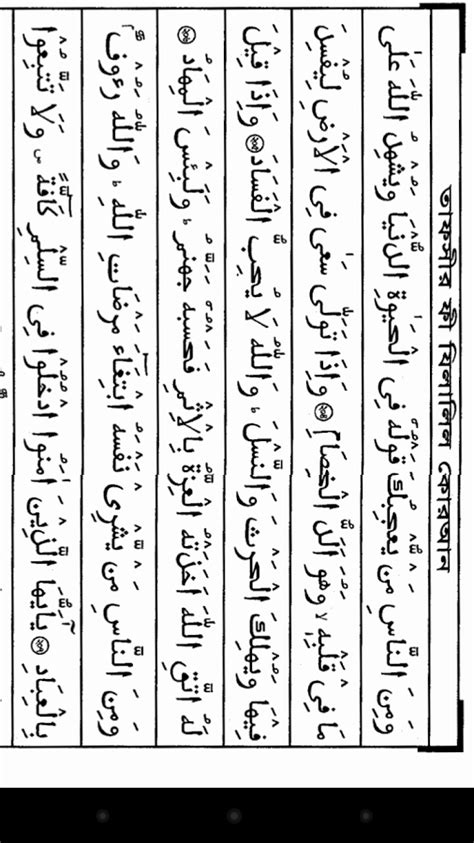 তাফসীর ফী যিলালিল কোরআন
وَمِنَ النَّاسِ مَنْ يُّعْجِبُكَ قَوْلُهٗ فِى الْحَيٰوةِ الدُّنْيَا وَيُشْهِدُ اللّٰهَ عَلٰى
مَا فِىْ قَلْبِهٖ ۙ وَهُوَ اَلَدُّ الْخِصَامِ ﴿২০৪﴾ وَاِذَا تَوَلّٰى سَعٰى فِى الْاَرْضِ لِيُفْسِدَ
فِيْهَا وَيُهْلِكَ الْحَرْثَ وَالنَّسْلَ ؕ وَاللّٰهُ لَا يُحِبُّ الْفَسَادَ ﴿২০৫﴾ وَاِذَا قِيْلَ
لَهُ اتَّقِ اللّٰهَ اَخَذَتْهُ الْعِزَّةُ بِالْاِثْمِ فَحَسْبُهٗ جَهَنَّمُ ؕ وَلَبِئْسَ الْمِهَادُ ﴿২০৬﴾
وَمِنَ النَّاسِ مَنْ يَّشْرِىْ نَفْسَهُ ابْتِغَآءَ مَرْضَاتِ اللّٰهِ ؕ وَاللّٰهُ رَءُوْفٌۢ
بِالْعِبَادِ ﴿২০৭﴾ يٰٓاَيُّهَا الَّذِيْنَ اٰمَنُوا ادْخُلُوْا فِى السِّلْمِ كَآفَّةً ۪ وَلَا تَتَّبِعُوْا